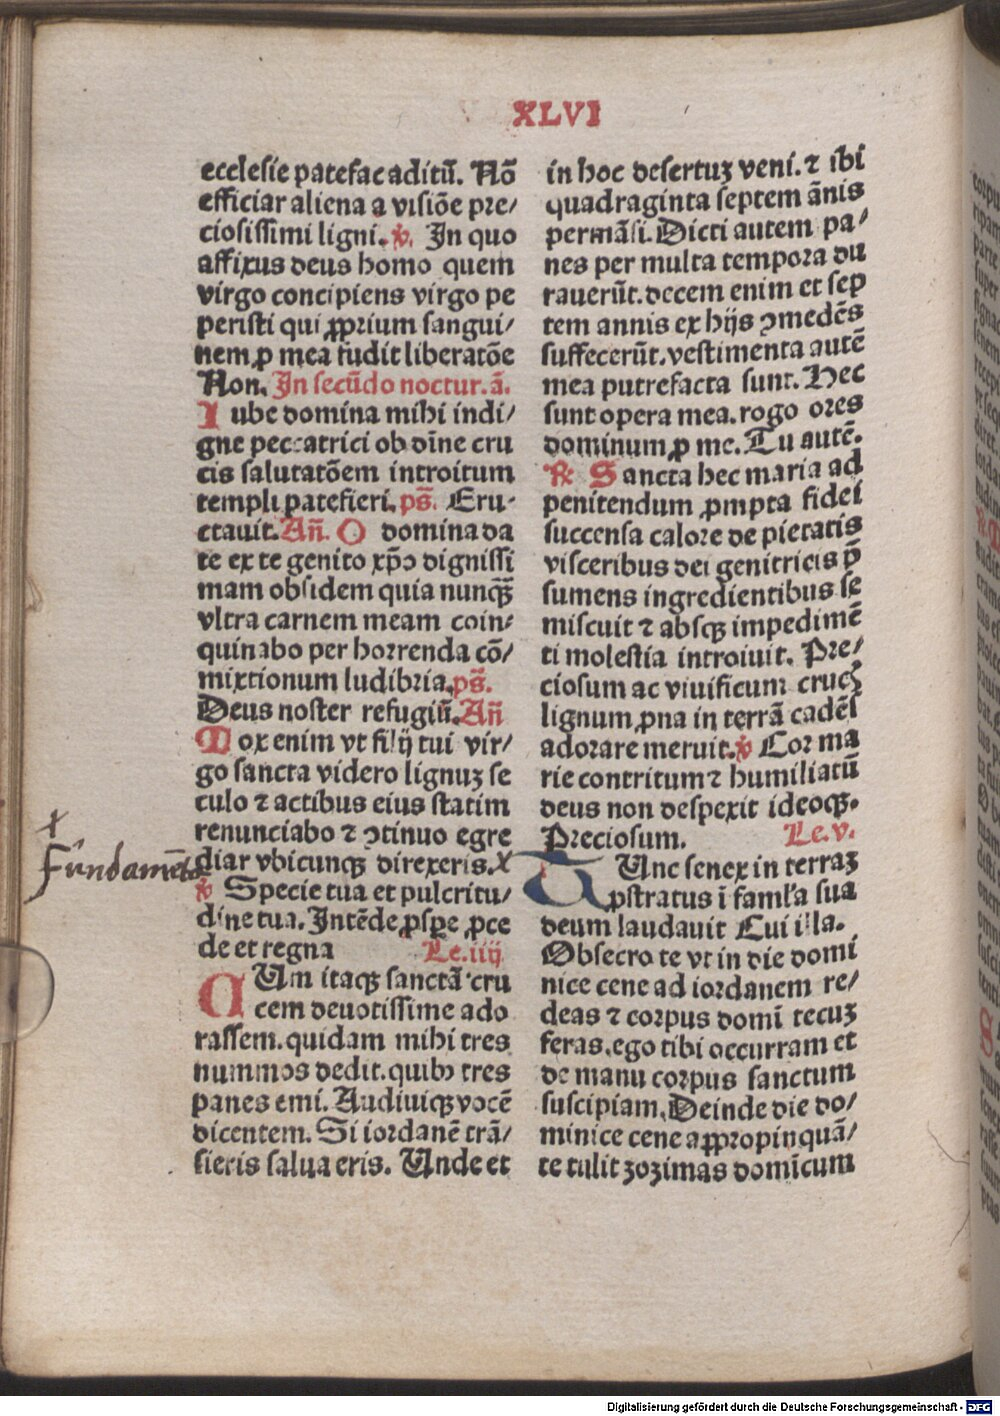 XLVI
ecclesie patefac aditū. Nō
efficiar aliena a visiōe pre/
ciosissimi ligni. ℣. In quo
affixus deus homo quem
virgo concipiens virgo pe
peristi qui ꝓprium sangui/
nem ꝓ mea fudit liberatōe
Non. In secūdo noctur. ā.
Iube domina mihi indi/
gne peccatrici ob dīne cru
cis salutatōem introitum
templi patefieri. ps̄. Eru-
ctauit. An̄. O domina da
te ex te genito xp̄o dignissi
mam obsidem quia nunqꝫ̄
vltra carnem meam coin/
quinabo per horrenda cō/
mixtionum ludibria. ps̄.
Deus noster refugiū. An̄
Mox enim vt filij tui vir/
go sancta videro lignuꝫ se
culo ⁊ actibus eius statim
renunciabo ⁊ ꝯtinuo egre
diar vbicunqꝫ direxeris. x
+
Fundamēta
℣ Specie tua et pulcritu/
dine tua. Intēde ꝓspe ꝓce
de et regna Le. iiij
CUm itaqꝫ sanctā cru
cem deuotissime ado
rassem. quidam mihi tres
nummos dedit. quibꝰ tres
panes emi. Audiuiqꝫ vocē
dicentem. Si iordanē trā/
sieris salua eris. Unde et
in hoc desertuꝫ veni. ⁊ ibi
quadraginta septem ānis
permāsi. Dicti autem pa/
nes per multa tempora du
rauerūt. decem enim et sep
tem annis ex hijs ꝯmedēs
suffecerūt. vestimenta autē
mea putrefacta sunt. Hec
sunt opera mea. rogo ores
dominum ꝓ me. Tu autē.
℟ Sancta hec maria ad
penitendum ꝓmpta fidei
succensa calore de pietatis
visceribus dei genitricis p̄
sumens ingredientibus se
miscuit ⁊ absqꝫ impedimē
ti molestia introiuit. Pre/
ciosum ac viuificum crucꝭ
lignum ꝓna in terrā cadēs
adorare meruit. ℣ Cor ma
rie contritum ⁊ humiliatū
deus non despexit ideoqꝫ.
Preciosum. Le. v.
TUnc senex in terraꝫ
ꝓstratus ī faml'a sua
deum laudauit Cui illa.
Obsecro te vt in die domi
nice cene ad iordanem re/
deas ⁊ corpus domī tecuꝫ
feras. ego tibi occurram et
de manu corpus sanctum
suscipiam. Deinde die do/
minice cene aꝓpropinquā/
te tulit zozimas domīcum
Digitalisierung gefördert durch die Deutsche Forschungsgemeinschaft - DFG